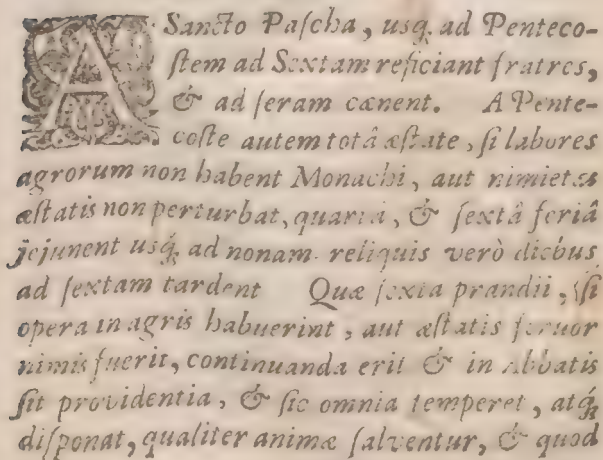 A Sancto Pascha, usq; ad Penteco-
stem ad Sextam reficiant fratres,
& ad seram cænent. A Pente-
coste autem totâ æstate, si labores
agrorum non habent Monachi, aut nimietas
æstatis non perturbat, quartâ, & sextâ feriâ
jejunent usq; ad nonam. reliquis verò diebus
ad sextam tardent Quæ sexta prandii, si
opera in agris habuerint, aut æstatis fervor
nimis fuerit, continuanda erit & in Abbatis
sit providentia, & sic omnia temperet, atq;
disponat, qualiter animæ salventur, & quod